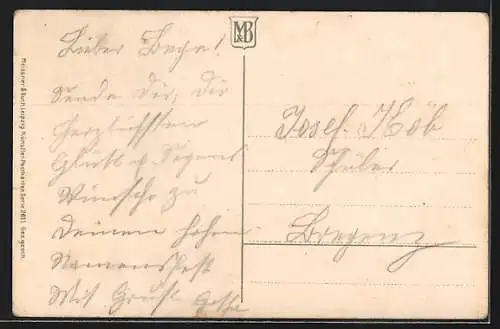 MB
&
Lieber
Sende Dir, die
herzlichsten
Glück u. Segens
Wünsche zu
Deinem hohen
Namensfest
Mit Gruß
Josef Köb
Schüler
Bregenz
Meissner & Buch, Leipzig. Künstler-Postkarten Serie 2611. Ges. gesch.